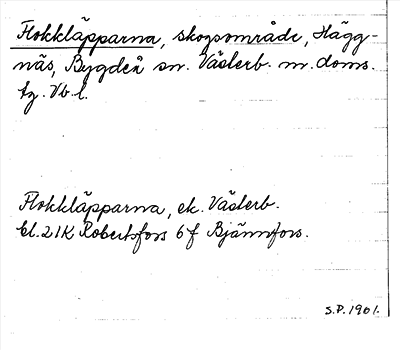 Flokkläpparna, skogsområde, Hägg-
näs, Bygdeå sn. Västerb. m. doms.
tg. Vb. l.
Flokkläpparna, ek. Västerb.
bl. 21K Robertsfors 6 f Bjännfors.
S.P. 1961.